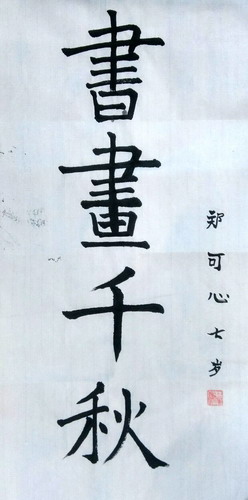 書畫千秋
郑可心七岁